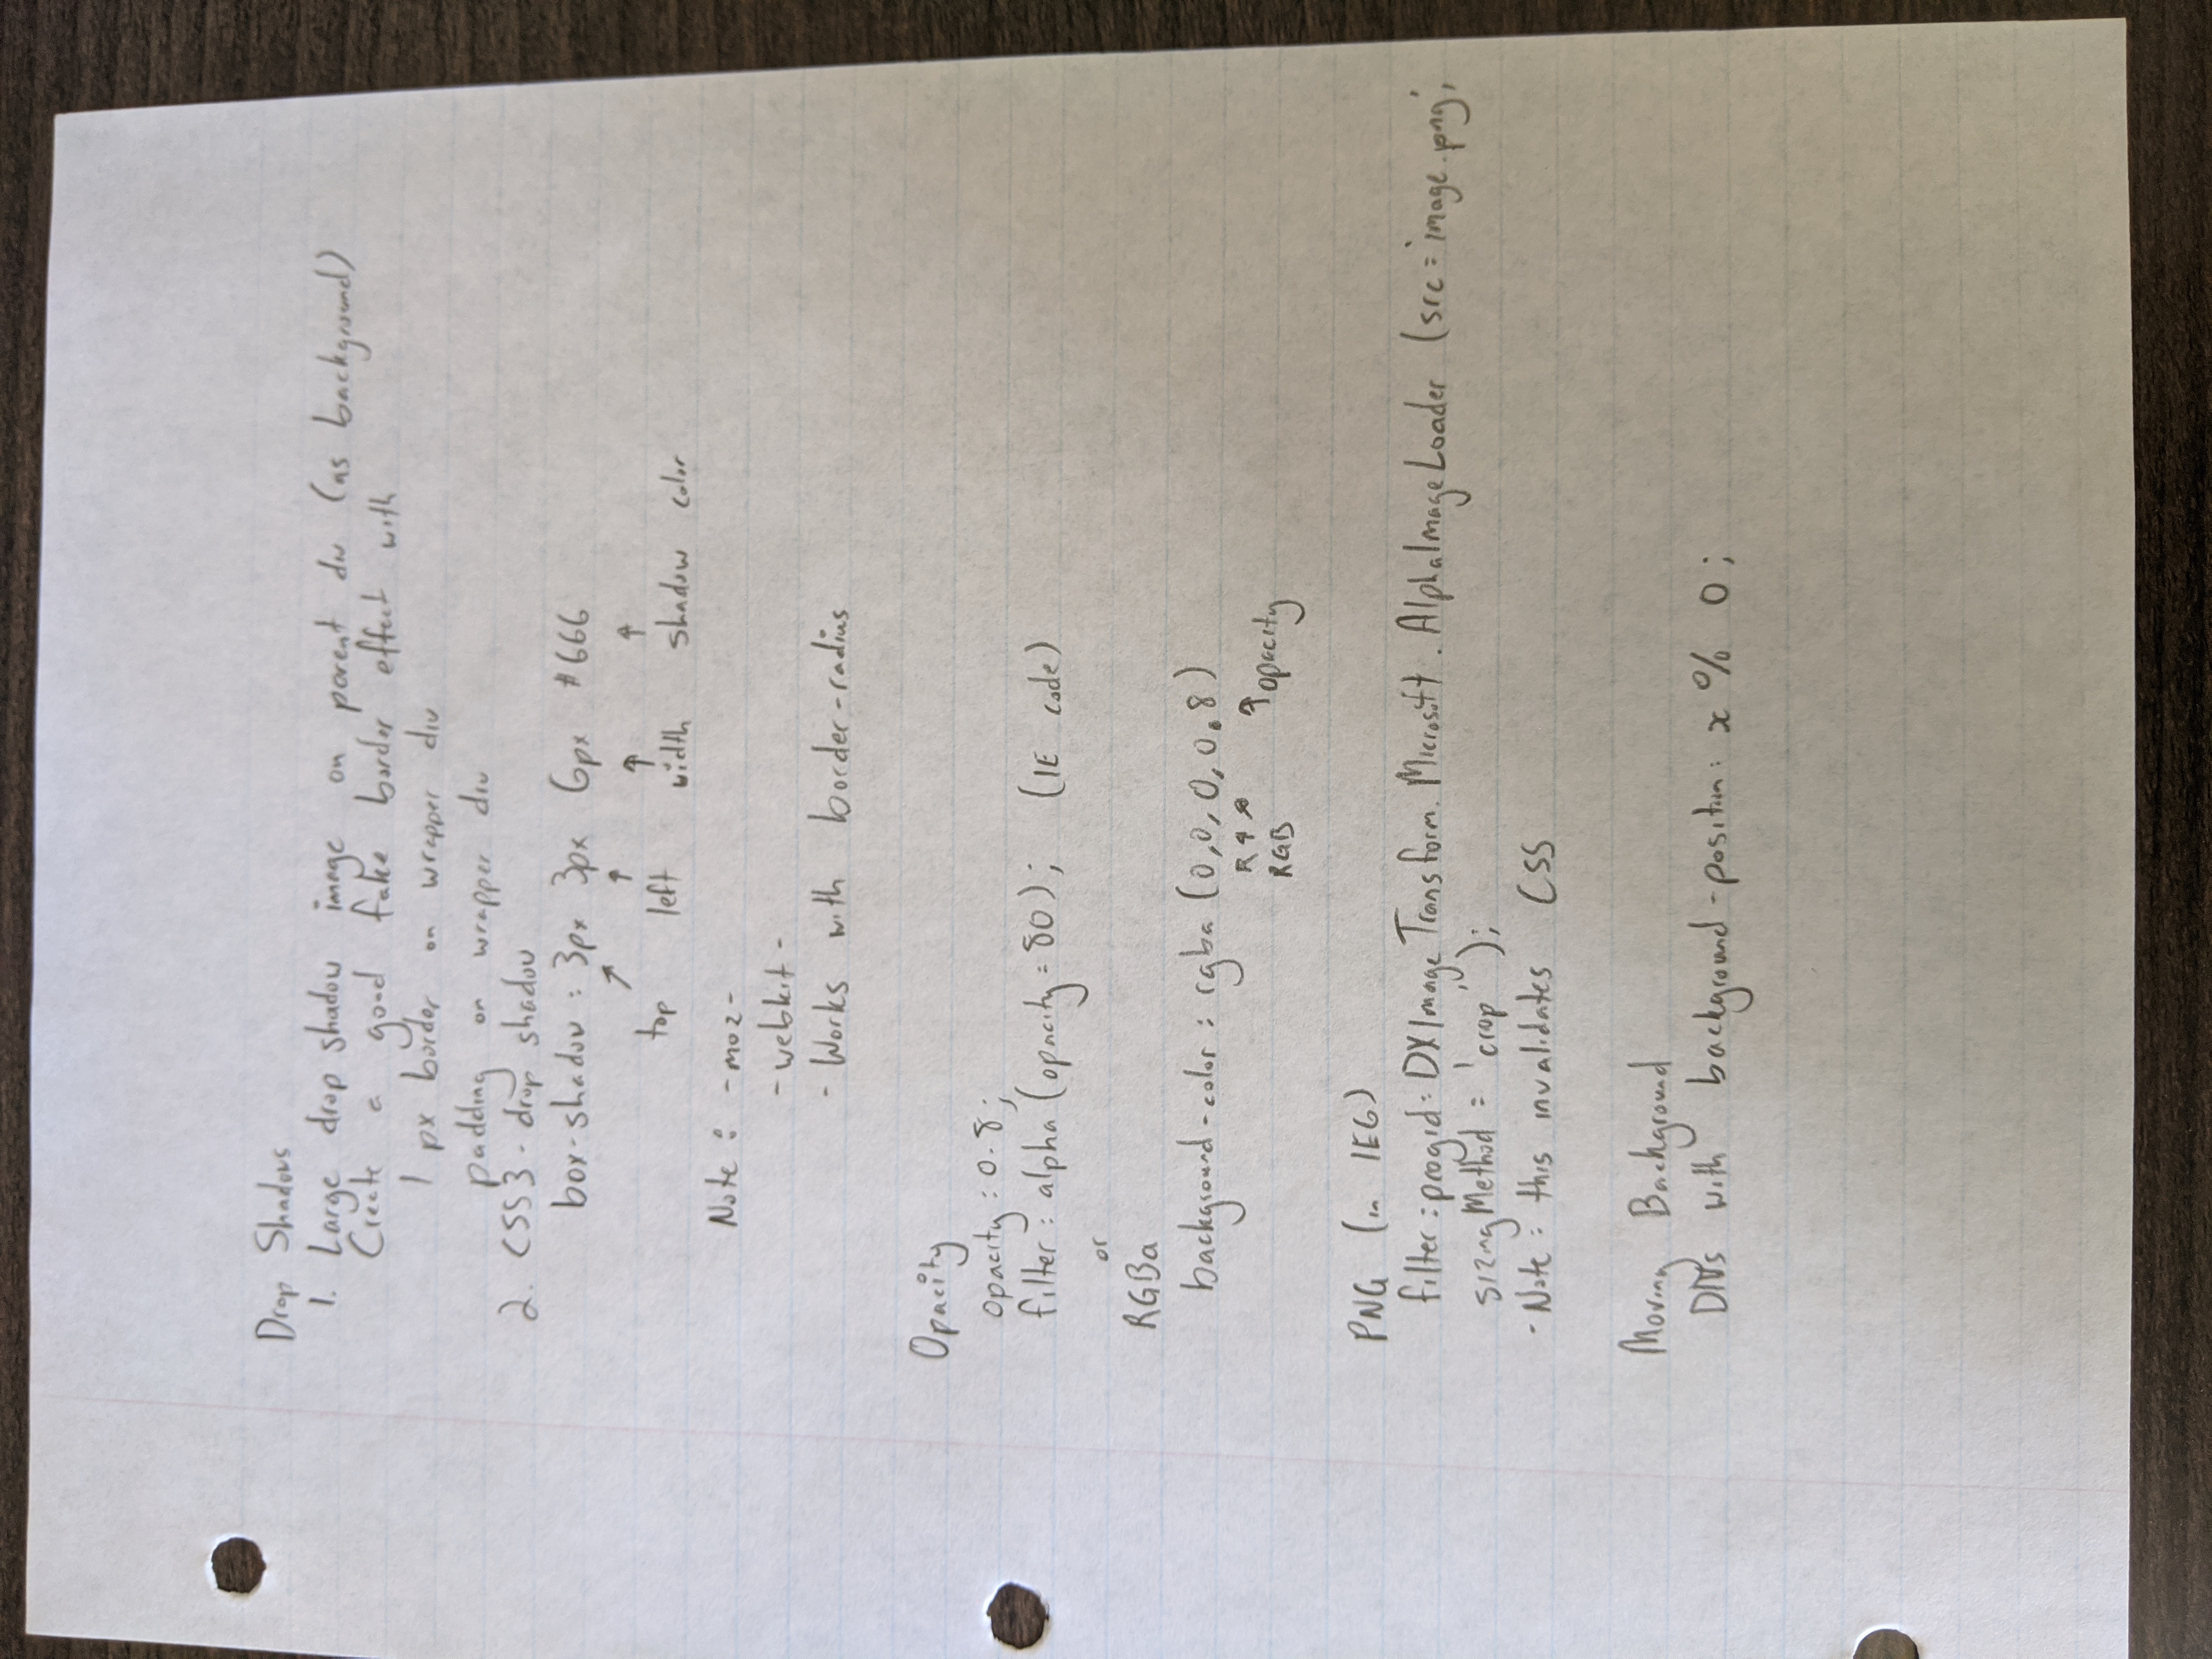 Drop Shadows
1. Large drop shadow image on parent div (as background)
Create a good fake border effect with
1 px border on wrapper div
padding on wrapper div
2. CSS3 - drop shadow
box-shadow : 3px 3px 6px #666
top left width shadow color
Note : -moz-
-webkit-
- Works with border-radius
Opacity
opacity : 0.8;
filter : alpha (opacity = 80); (IE code)
or
RGBa
background-color : rgba (0,0,0,0.8)
RGB opacity
PNG (in IE6)
filter :progid: DXImageTransform.Microsoft.AlphaImageLoader (src='image.png',
sizingMethod = 'crop' );
- Note : this invalidates CSS
Moving Background
DIVs with background-position: x% 0;